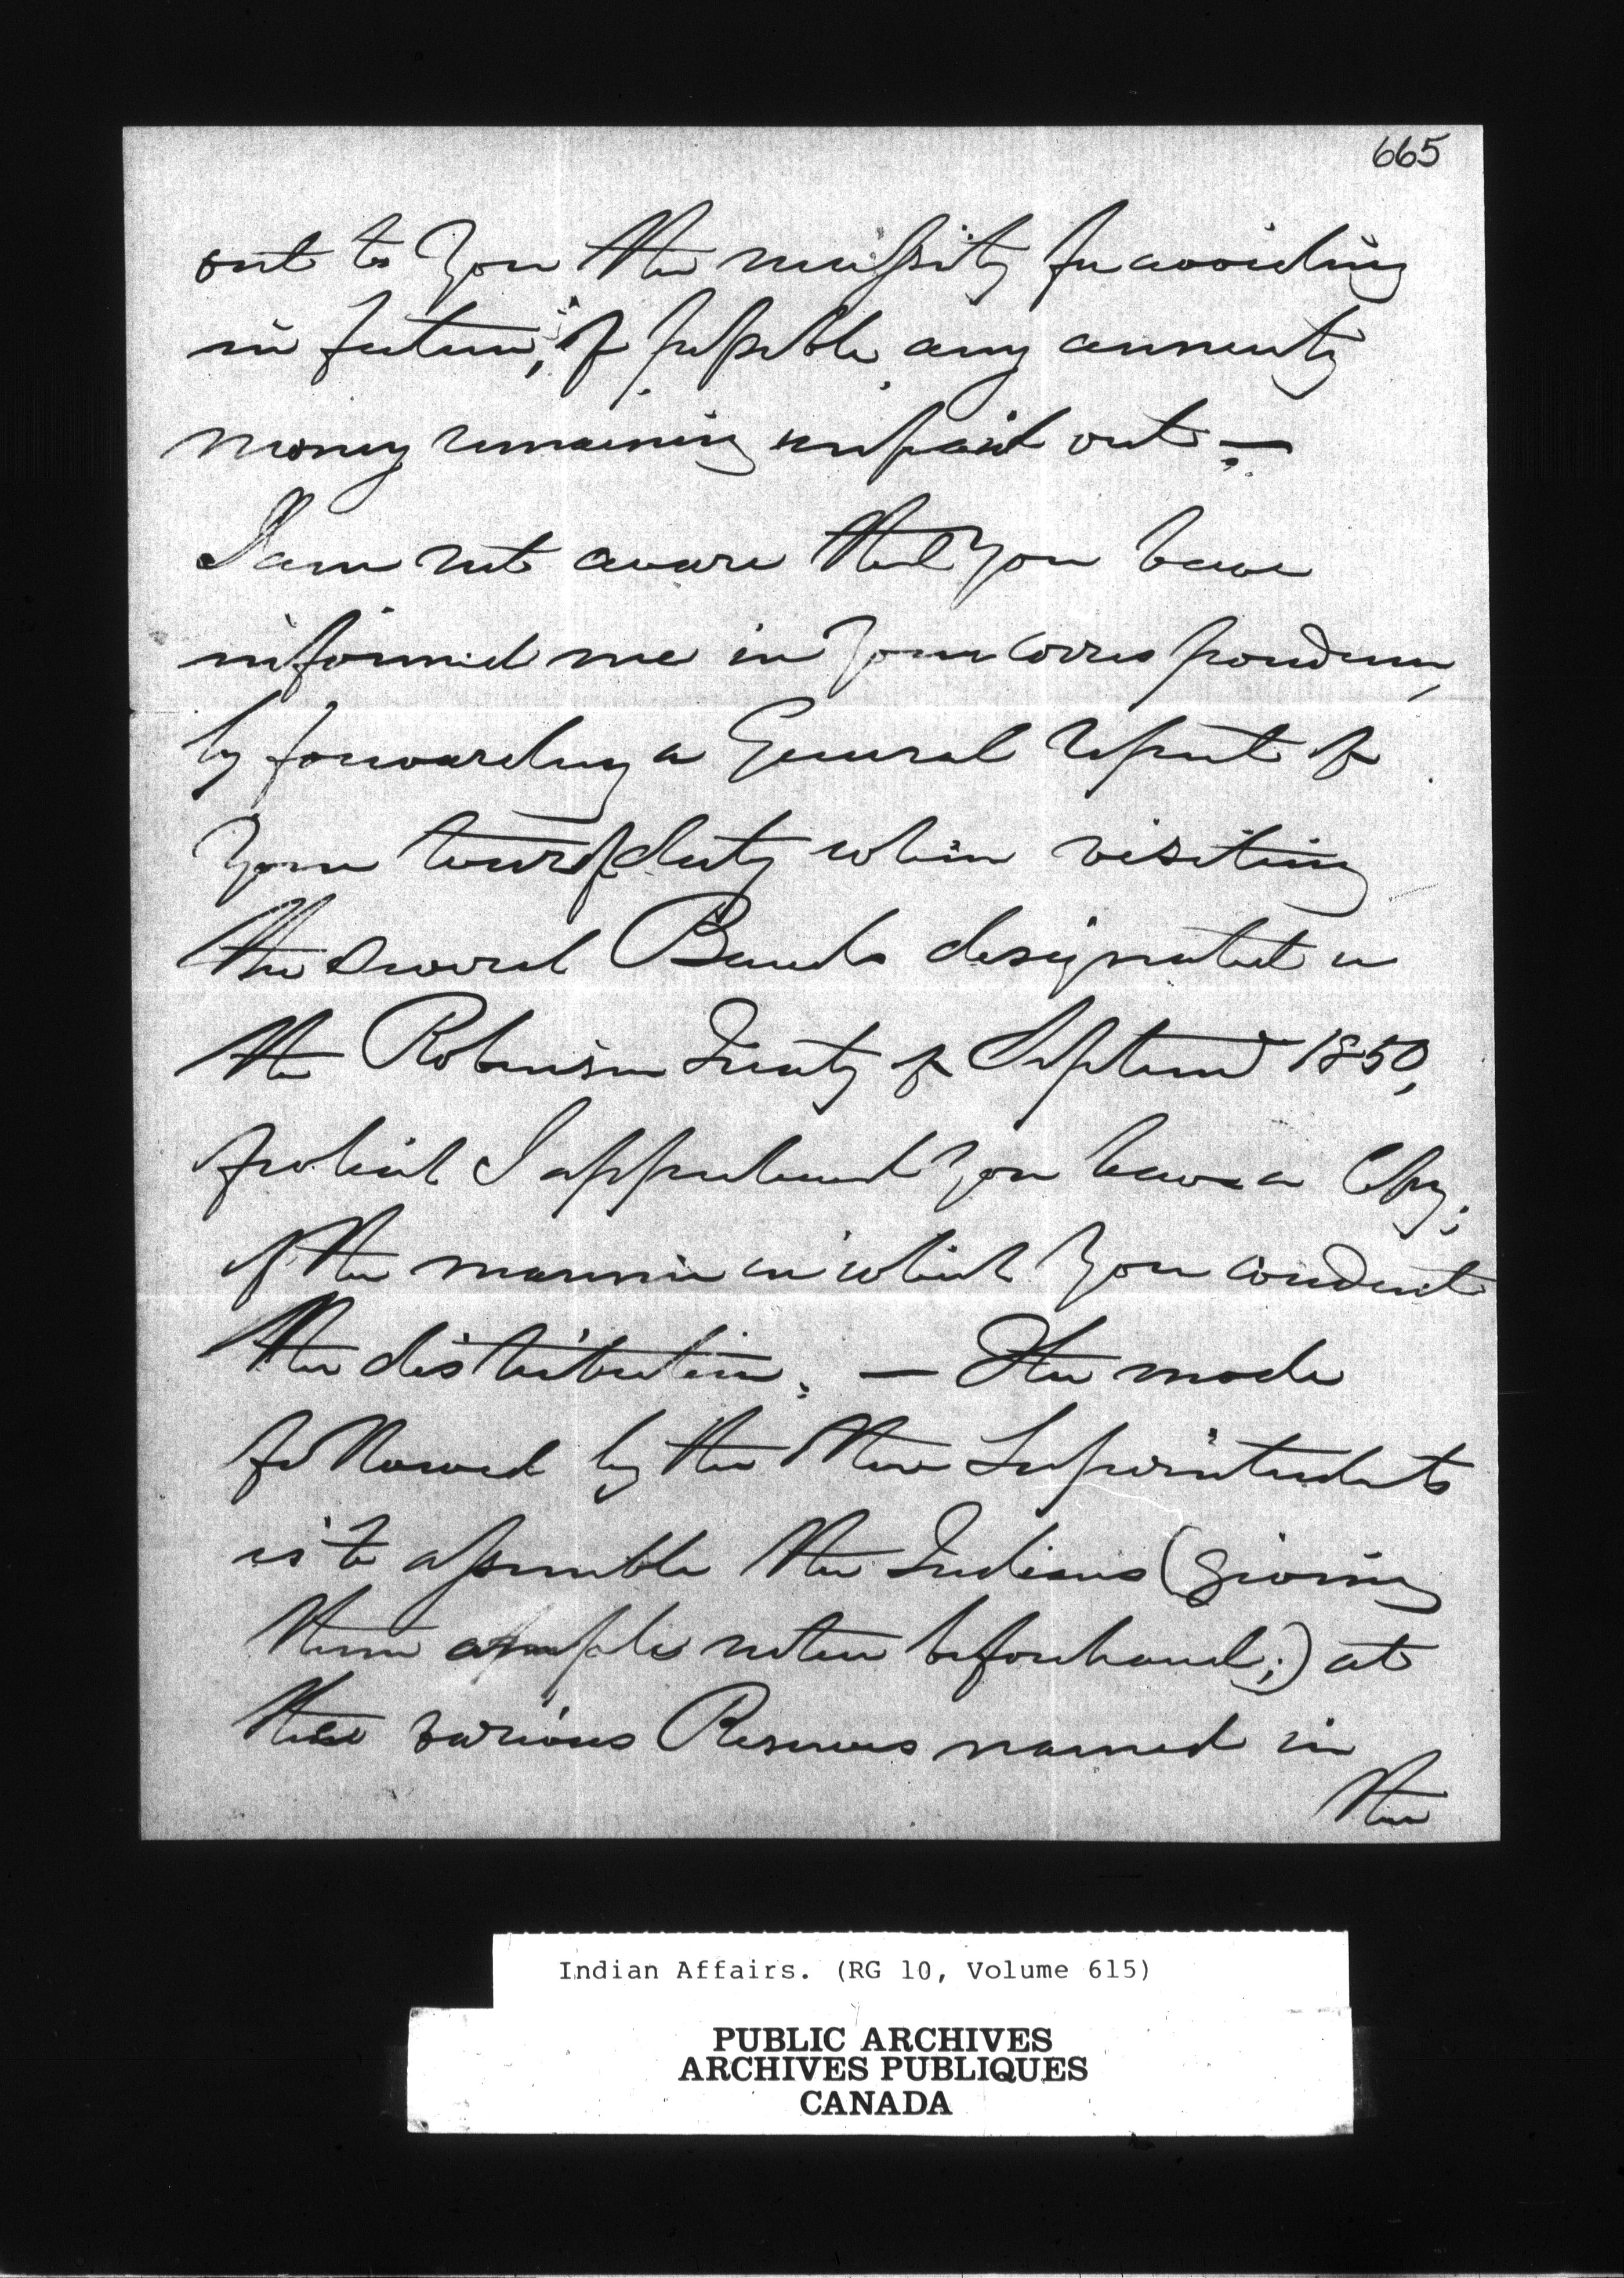 665
out to you the necessity for avoiding
in future, if possible, any annuity
money remaining unpaid out. —
I am not aware that you have
informed me in your correspondence,
by forwarding a General Report of
your tour of duty when visiting
the several Bands designated in
the Robinson Treaty of September 1850,
of which I apprehend you have a Copy;
of the manner in which you conduct
the distribution. — The mode
followed by the other Superintendents
is to assemble the Indians (giving
them ample notice beforehand;) at
these various Reserves named in
the
Indian Affairs. (RG 10, Volume 615)
PUBLIC ARCHIVES
ARCHIVES PUBLIQUES
CANADA